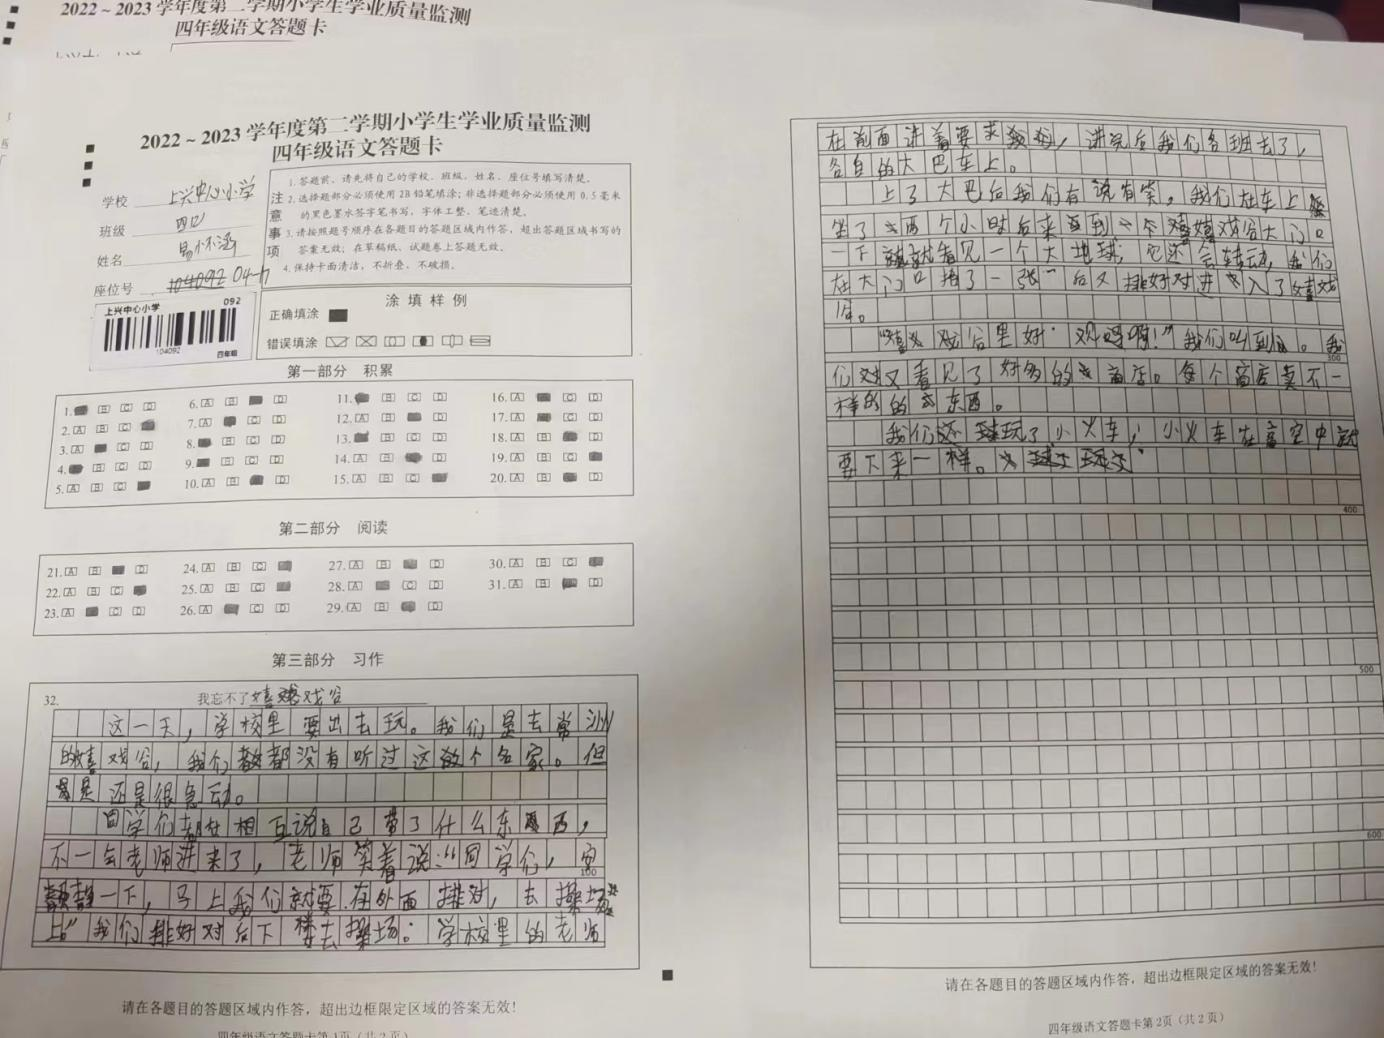 2022～2023学年度第二学期小学生学业质量监测
四年级语文答题卡
2022～2023学年度第二学期小学生学业质量监测
四年级语文答题卡
学校 上兴中心小学
班级
姓名 易怀涵
座位号 104092 04-17
注意事项
1.答题前，请先将自己的学校、班级、姓名、座位号填写清楚。
2.选择题部分必须使用2B铅笔填涂；非选择题部分必须使用0.5毫米
的黑色墨水签字笔书写，字体工整、笔迹清楚。
3.请按照题号顺序在各题目的答题区域内作答，超出答题区域书写的
答案无效；在草稿纸、试题卷上答题无效。
4.保持卡面清洁，不折叠、不破损。
上兴中心小学 092
104092 四年级
涂填样例
正确填涂
错误填涂
第一部分 积累
1. B C D 6. A B D 11. B C D 16. A C D
2. A B C 7. A C D 12. A B D 17. A C D
3. A C D 8. B C D 13. B C D 18. A B D
4. B C D 9. B C D 14. A B D 19. A B D
5. A B C 10. A B D 15. A B C 20. A B D
第二部分 阅读
21. A B D 24. A B C 27. A B D 30. A B C
22. A B C 25. A B C 28. A C D 31. A B D
23. A C D 26. A C D 29. A B D
第三部分 习作
32. 我忘不了嬉戏谷
这一天，学校里要出去玩。我们是去常州
的嬉戏谷，我们都没有听过这个名字。但
是还是很急动。
同学们都在相互说自己带了什么东西，
不一会老师进来了，老师笑着说：“同学们，安
100
静一下，马上我们就要在外面排对，去操场
上”我们排好对后下楼去操场；学校里的老师
请在各题目的答题区域内作答，超出边框限定区域的答案无效！
四年级语文答题卡第1页（共2页）
在前面讲着要求，讲完后我们各班去了，
各自的大巴车上。
上了大巴后我们有说有笑，我们在车上
坐了两个小时后来到嬉戏谷大门。
一下就看见一个大地球；它还会转动，我们
在大门口拍了一张后又排好对进入了嬉戏
谷。
“嬉戏谷里好观啊！”我们叫到。我
300
们又看见了好多的商店。每个商店卖不一
样的东西。
我们还玩了小火车，小火车在高空中就
要下来一样。
400
500
600
请在各题目的答题区域内作答，超出边框限定区域的答案无效！
四年级语文答题卡第2页（共2页）